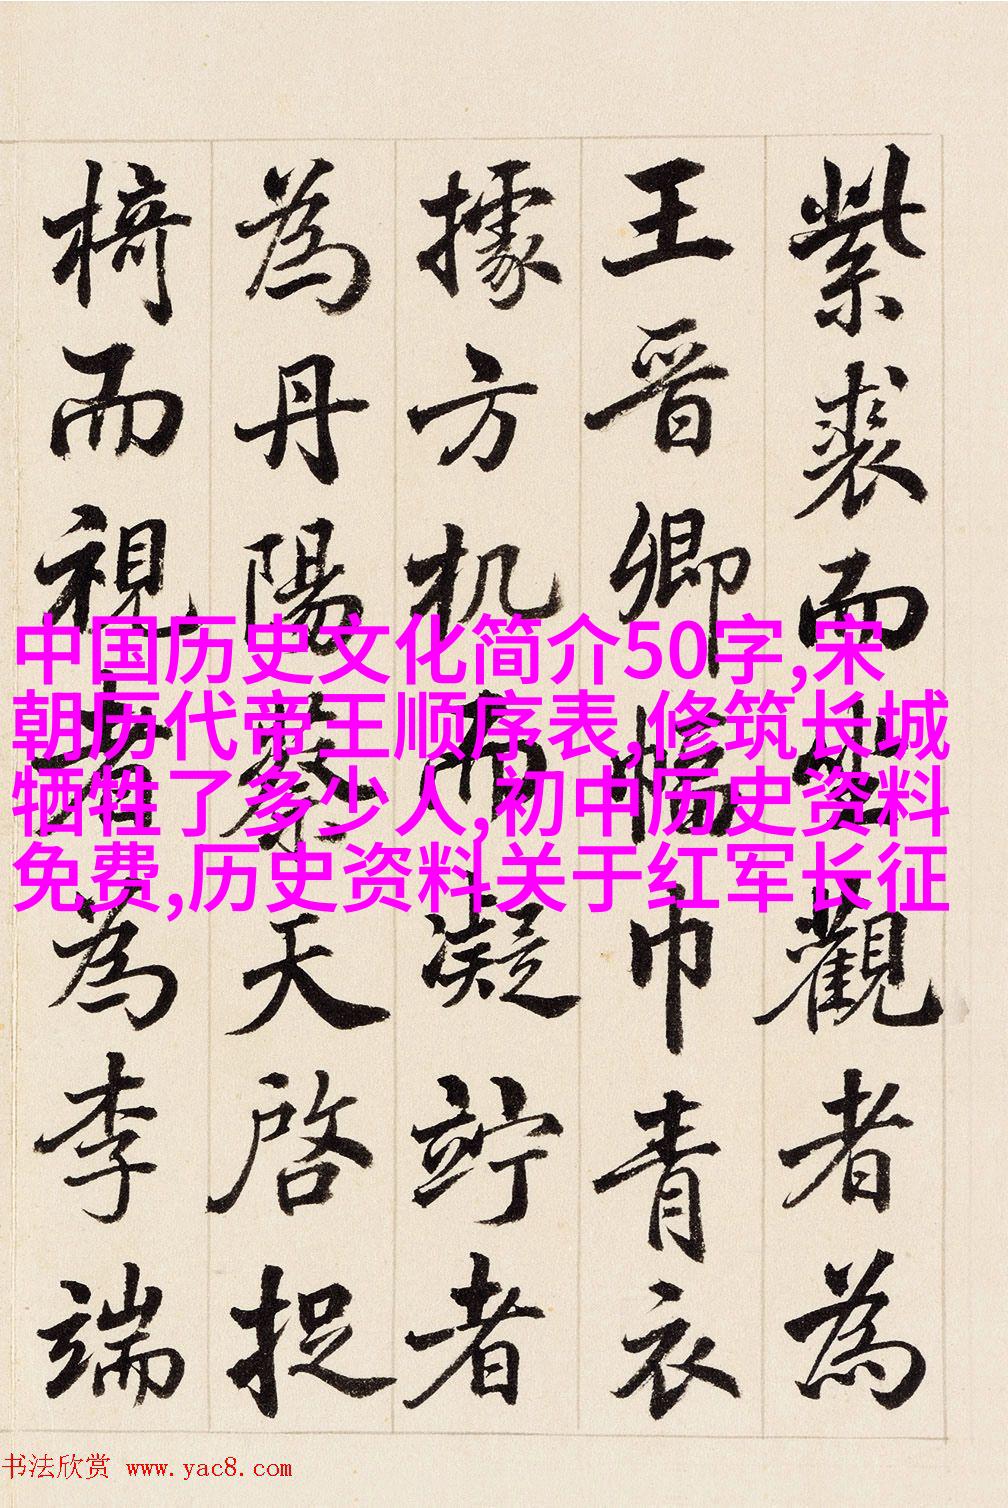 紫裘而坐觀者為
王晋卿幅巾青衣
據方机而凝竚者
為丹陽蔡天啓捉
椅而視者為李端
中国历史文化简介50字,宋
朝历代帝王顺序表,修筑长城
牺牲了多少人,初中历史资料
免费,历史资料关于红军长征
书法欣赏 www.yac8.com